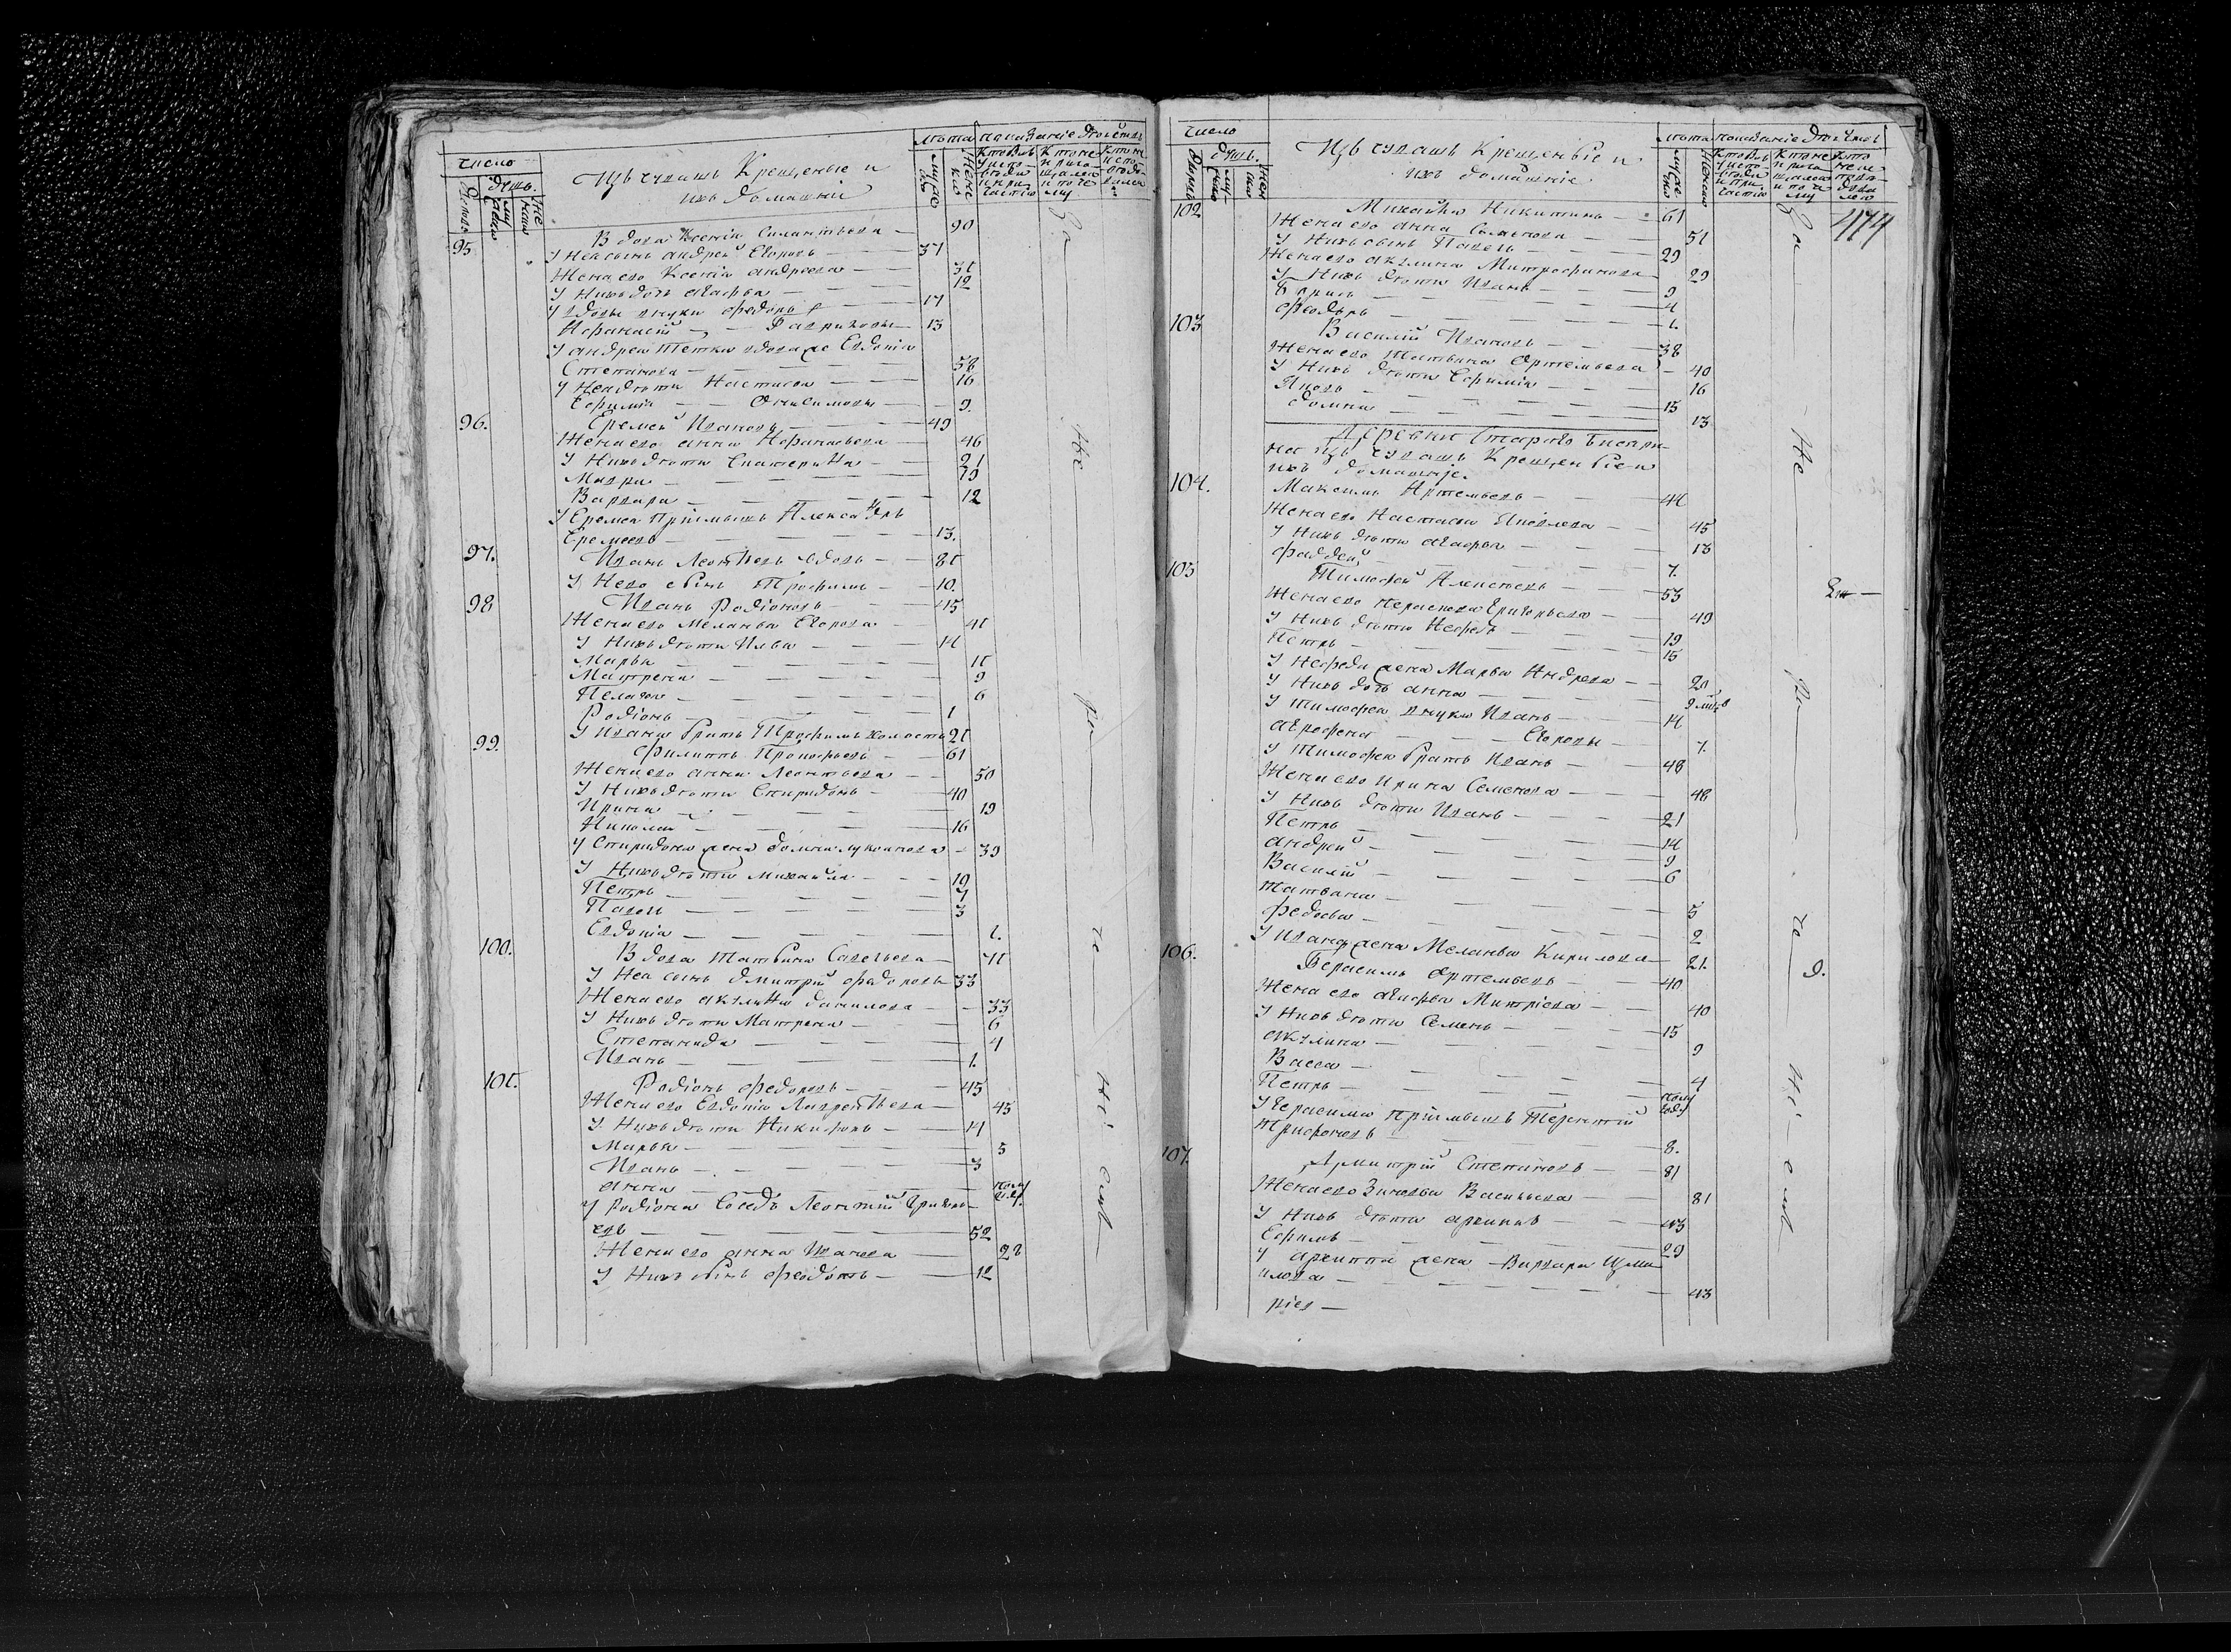 число
душъ
Изъ чувашъ Крещеные и
ихъ домашніи
лѣта
показаніе дѣйств
Вдова Ксенія Силантьева — 90
95 У Нея сынъ андрей Егоровъ — 37
Жена его Ксенія андреева — 31
У Нихъ дочь агафья — 12
У вдовы внуки федоръ — 17
Афанасій — Гавриловы — 13
У андрея Тетка вдова же Евдокія
Степанова — 58
У Нея дѣти Настасья — 16
Ефимія — Онисимовы — 9.
96. Еремей Ивановъ — 49
Жена его анна Афанасьева — 46
У Нихъ дѣти Екатерина — 21
Мавра — 19
Варвара — 12
У Еремея Пріимышъ Александръ
Еремеевъ — 13.
97. Иванъ Леонтьевъ вдовъ — 81
У Него сынъ Трофимъ — 10.
98 Иванъ Родіоновъ — 45
Жена его Меланья Егорова — 41
У Нихъ дѣти Илья — 14
Марья — 11
Матрена — 9
Пелагея — 6
Родіонъ — 1
У Ивана братъ Трофимъ холостъ 21
99. Филиппъ Прокофьевъ — 61
Жена его анна Леонтьева — 50
У Нихъ дѣти Спиридонъ — 40
Ирина — 19
Николай — 16
У Спиридона жена домна лукоянова — 39
У Нихъ дѣти Михайла — 10
Петръ — 7
Павелъ — 3
Евдокія — 1.
100. Вдова Татьяна Савельева — 71
У Нея сынъ дмитрій федоровъ 33
Жена его акулина данилова — 33
У Нихъ дѣти Матрена — 6
Степанида — 4
Иванъ — 1.
101. Родіонъ федоровъ — 45
Жена его Евдокія Лаврентьева — 45
У Нихъ дѣти Никифоръ — 14
Марья — 5
Иванъ — 3
анна — полу года
У Родіона Соседъ Леонтій Григорь-
евъ — 52
Жена его анна Иванова — 28
У Нихъ сынъ федотъ — 12
За не ра че ні емъ
число
душъ.
Изъ чувашъ Крещеныіе и
ихъ домашніе
лѣта
показаніе дѣйст
474
102 Михайла Никитинъ — 61
Жена его анна Семенова — 51
У Нихъ сынъ Павелъ — 29
Жена его акулина Митрофанова — 29
У Нихъ дѣти Иванъ — 9
Борисъ — 4
Феодоръ — 1.
103 Василій Ивановъ — 38
Жена его Татьяна Артемьева — 40
У Нихъ дѣти Ефимія — 16
Яковъ — 15
домна — 13
Деревни Стараго
изъ чувашъ Крещеныіе и
ихъ домашніе.
104. Максимъ Артемьевъ — 44
Жена его Настасья Яковлева — 45
У Нихъ дѣти агафья — 13
фаддей — 7.
105 Тимофей Алексеевъ — 53
Жена его Параскева Григорьева — 49
У Нихъ дѣти Нефедъ — 19
Петръ — 15
У Нефеда жена Марья Андреева — 20
У Нихъ дочь анна — 9 мѣся
У тимофея внуки Иванъ — 14
аграфена — Егоровы — 7.
У Тимофея братъ Иванъ — 48
Жена его Ирина Семенова — 48
У Нихъ дѣти Иванъ — 21
Петръ — 14
андрей — 9
Василій — 6
татьяна — 5
федосья — 2
У Ивана жена Меланья Кирилова — 21.
106. Герасимъ артемьевъ — 40
Жена его агафья Митріева — 40
У Нихъ дѣти Семенъ — 15
акулина — 9
Васса — 4
Петръ — полу году
У Герасима Пріимышъ Терентій
Трифоновъ — 8.
107. Дмитрій Степановъ — 81
Жена его Зиновья Васильева — 81
У Нихъ дѣти архипъ — 43
Ефимъ — 29
У архипа жена Варвара Изма-
илова — 43
ріев —
За Не ра че ні емъ